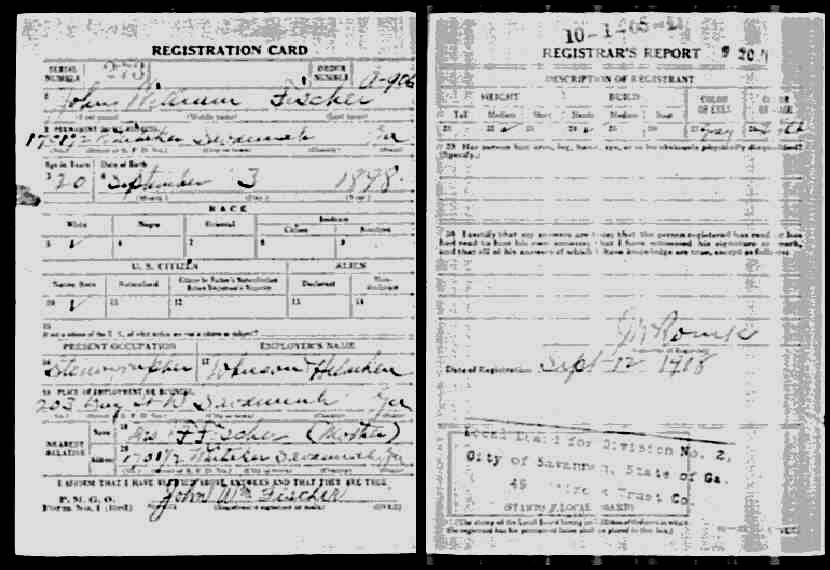 REGISTRATION CARD
SERIAL NUMBER 273 ORDER NUMBER A-906
1 John William Fischer
(First name) (Middle name) (Last name)
2 PERMANENT HOME ADDRESS:
Savannah Ga
(No.) (Street or R. F. D. No.) (City or town) (County) (State)
Age in Years Date of Birth
3 20 4 September 3 1898
(Month.) (Day.) (Year.)
RACE
White Negro Oriental Indian
Citizen Noncitizen
5 6 7 8 9
U. S. CITIZEN ALIEN
Native Born Naturalized Citizen by Father's Naturalization Before Registrant's Majority Declarant Non-declarant
10 11 12 13 14
15
If not a citizen of the U. S., of what nation are you a citizen or subject?
PRESENT OCCUPATION EMPLOYER'S NAME
16 Stenographer 17
18 PLACE OF EMPLOYMENT OR BUSINESS:
203 Bay St W Savannah Ga
(No.) (Street or R. F. D. No.) (City or town) (County) (State)
NEAREST RELATIVE Name 19 Mrs F Fischer (Mother)
Address 20 Savannah Ga
(No.) (Street or R. F. D. No.) (City or town) (County) (State)
I AFFIRM THAT I HAVE VERIFIED ABOVE ANSWERS AND THAT THEY ARE TRUE
P. M. G. O.
Form No. 1 (Red) John Wm Fischer
(Registrant's signature or mark) (OVER)
10-1-65
REGISTRAR'S REPORT
DESCRIPTION OF REGISTRANT
HEIGHT BUILD COLOR OF EYES COLOR OF HAIR
Tall Medium Short Slender Medium Stout
21 22 23 24 25 26 27 Gray 28
29 Has person lost arm, leg, hand, eye, or is he obviously physically disqualified?
(Specify.)
30 I certify that my answers are true; that the person registered has read or has
had read to him his own answers; that I have witnessed his signature or mark,
and that all of his answers of which I have knowledge are true, except as follows:
Date of Registration Sept 12 1918
Local Board for Division No. 2,
City of Savannah, State of Ga.
Trust Co
(STAMP OF LOCAL BOARD)
(The stamp of the Local Board having jurisdiction of the area in which
the registrant has his permanent home shall be placed in this box.)